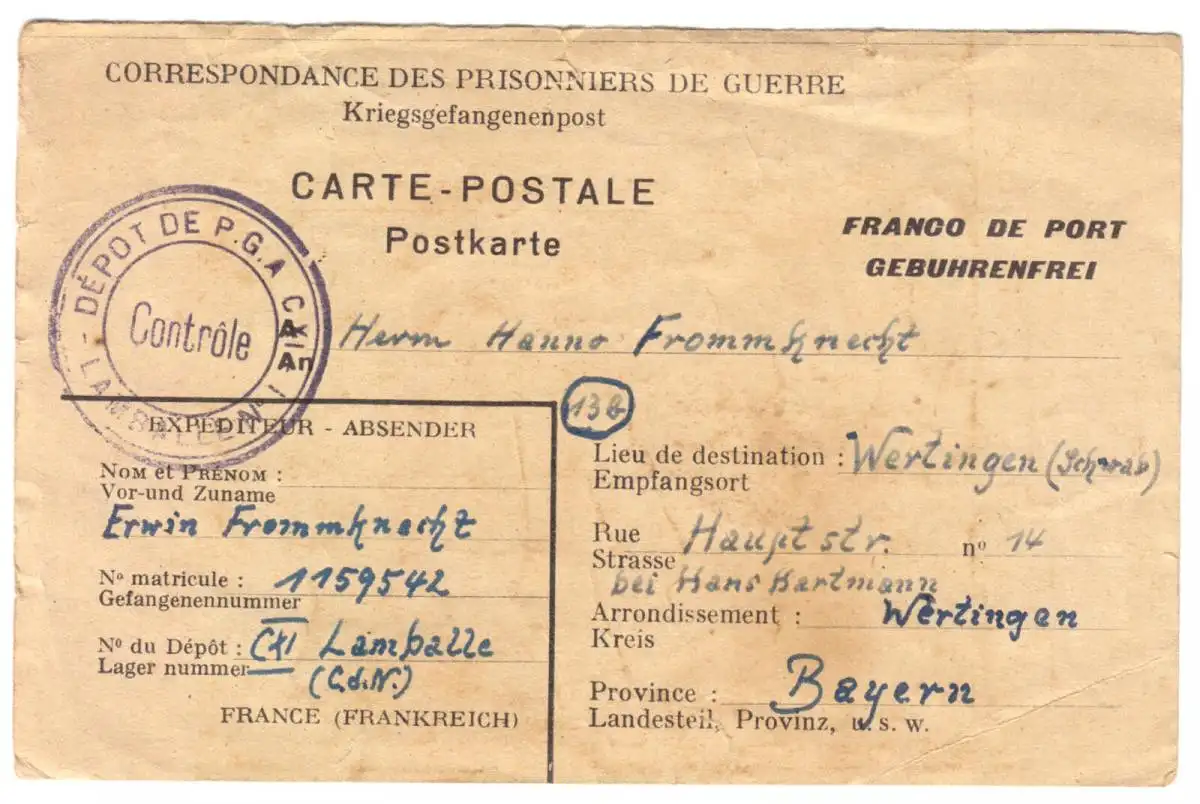 CORRESPONDANCE DES PRISONNIERS DE GUERRE
Kriegsgefangenenpost
CARTE-POSTALE
Postkarte
FRANCO DE PORT
GEBUHRENFREI
DÉPOT DE P.G.A CXI
Contrôle
LAMBALLE
An
Herrn Hanno Frommknecht
13b
EXPÉDITEUR - ABSENDER
NOM et PRÉNOM :
Vor-und Zuname
Erwin Frommknecht
No matricule : 1159542
Gefangenennummer
No du Dépôt : CXI Lamballe
Lager nummer (C.d.N.)
FRANCE (FRANKREICH)
Lieu de destination : Wertingen (Schwab)
Empfangsort
Rue Hauptstr. no 14
Strasse
bei Hans Hartmann
Arrondissement : Wertingen
Kreis
Province : Bayern
Landesteil, Provinz, u. s. w.